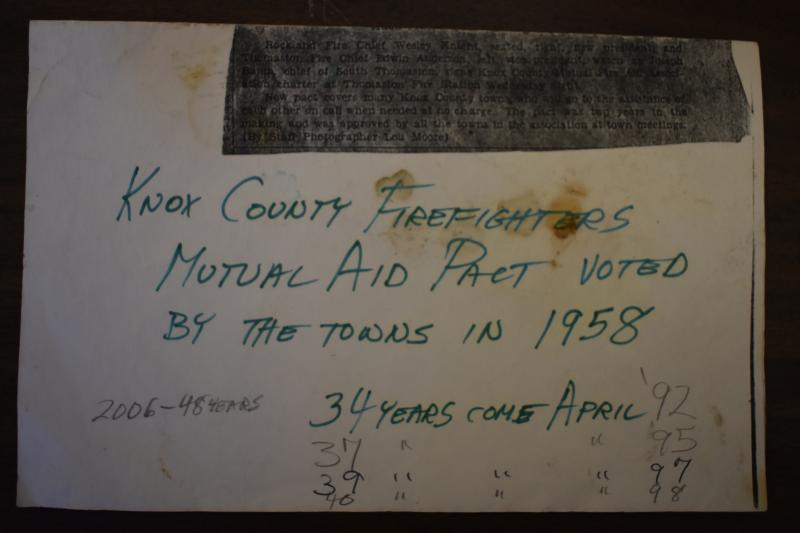 Rockland Fire Chief Wesley Knight, seated, right, new president and
Thomaston Fire Chief Edwin Anderson, left, vice president, watch as Joseph
Baum, chief of South Thomaston, signs Knox County Mutual Fire Aid Associ-
ation charter at Thomaston Fire Station Wednesday night.
New pact covers many Knox County towns who will go to the assistance of
each other on call when needed at no charge. The pact was two years in the
making and was approved by all the towns in the association at town meetings.
(By Staff Photographer Lou Moore)
KNOX COUNTY FIREFIGHTERS
MUTUAL AID PACT VOTED
BY THE TOWNS IN 1958
2006-48 YEARS 34 YEARS COME APRIL '92
37 " " 95
39 " " " 97
40 " " " 98